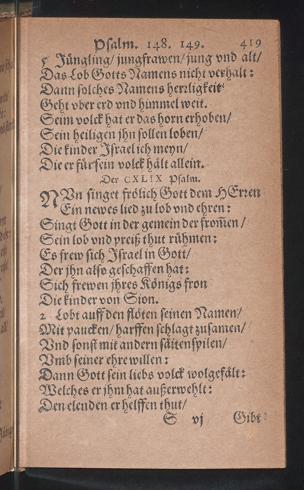 Psalm. 148. 149. 419
5 Jüngling/ jungfrawen/ jung vnd alt/
Das Lob Gotts Namens nicht verhalt:
Dann solches Namens herzligkeit
Geht vber erd vnd himmel weit.
Seim volck hat er das horn erhoben/
Sein heiligen jhn sollen loben/
Die kinder Israel ich meyn/
Die er für sein volck hält allein.
Der CXLIX Psalm.
NUn singet frölich Gott dem HErren
Ein newes lied zu lob vnd ehren:
Singt Gott in der gemein der from̃en/
Sein lob vnd preiß thut rühmen:
Es frew sich Israel in Gott/
Der jhn also geschaffen hat:
Sich frewen jhres Königs fron
Die kinder von Sion.
2 Lobt auff den flöten seinen Namen/
Mit paucken/ harffen schlagt zusamen/
Vnd sonst mit andern säitenspilen/
Vmb seiner ehre willen:
Dann Gott sein liebs volck wolgefält:
Welches er jhm hat außerwehlt:
Den elenden er helffen thut/
S vj Gibt